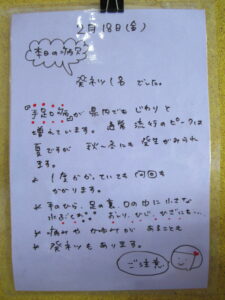 2月18日(金)
本日の病欠
発ネツ1名 でした。
『手足口病』が県内でもじわりと
増えています。 通常 流行のピークは
夏ですが 秋〜冬にも 発生がみられ
ます。
1度かかっていても何回も
かかります。
手のひら、足の裏、口の中に小さな
水ぶくれ。 おしり、ひじ、ひざにも…
痛みや かゆみが あることも
発ネツもあります。
ご注意